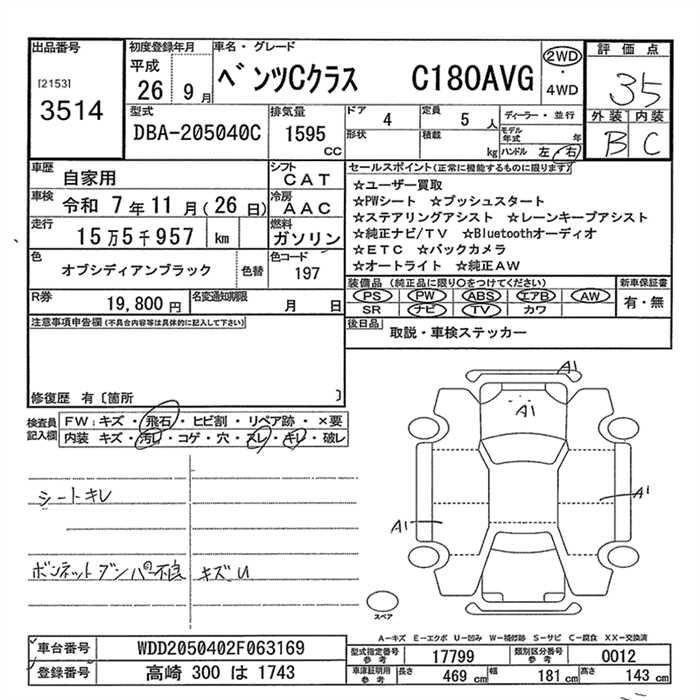 出品番号
[2153]
3514
初度登録年月
平成
26 9月
車名・グレード
ベンツCクラス C180AVG
2WD
・
4WD
評価点
35
外装 内装
B C
型式
DBA-205040C
排気量
1595
CC
ドア
4
定員
5 人
形状
積載
kg
ディーラー・並行
モデル
年式 年
ハンドル 左・右
車歴
自家用
シフト
CAT
車検
令和 7年11月(26日)
冷房
AAC
走行
15万5千957 km
燃料
ガソリン
色
オブシディアンブラック
色替
色コード
197
R券
19,800円
名変通知期限
月 日
セールスポイント(正常に機能するものに限ります)
☆ユーザー買取
☆PWシート ☆プッシュスタート
☆ステアリングアシスト ☆レーンキープアシスト
☆純正ナビ/TV ☆Bluetoothオーディオ
☆ETC ☆バックカメラ
☆オートライト ☆純正AW
装備品 (純正品に限り○をつけてください)
PS PW ABS エアB AW
SR ナビ TV カワ
新車保証書
有・無
後日品
取説・車検ステッカー
注意事項申告欄(不具合内容等は具体的に記入して下さい)
修復歴 有〔箇所 〕
検査員
記入欄
FW:キズ・飛石・ヒビ割・リペア跡・×要
内装 キズ・汚れ・コゲ・穴・スレ・キレ・破レ
シートキレ
ボンネットダンパー不良 キズU
A1
A1
A1
A1
スペア
A-キズ E-エクボ U-凹み W-補修跡 S-サビ C-腐食 XX-交換済
車台番号
WDD2050402F063169
登録番号
高崎 300 は 1743
型式指定番号
参考
17799
類別区分番号
参考
0012
車庫証明用
参考
長さ
469 cm
幅
181 cm
高さ
143 cm